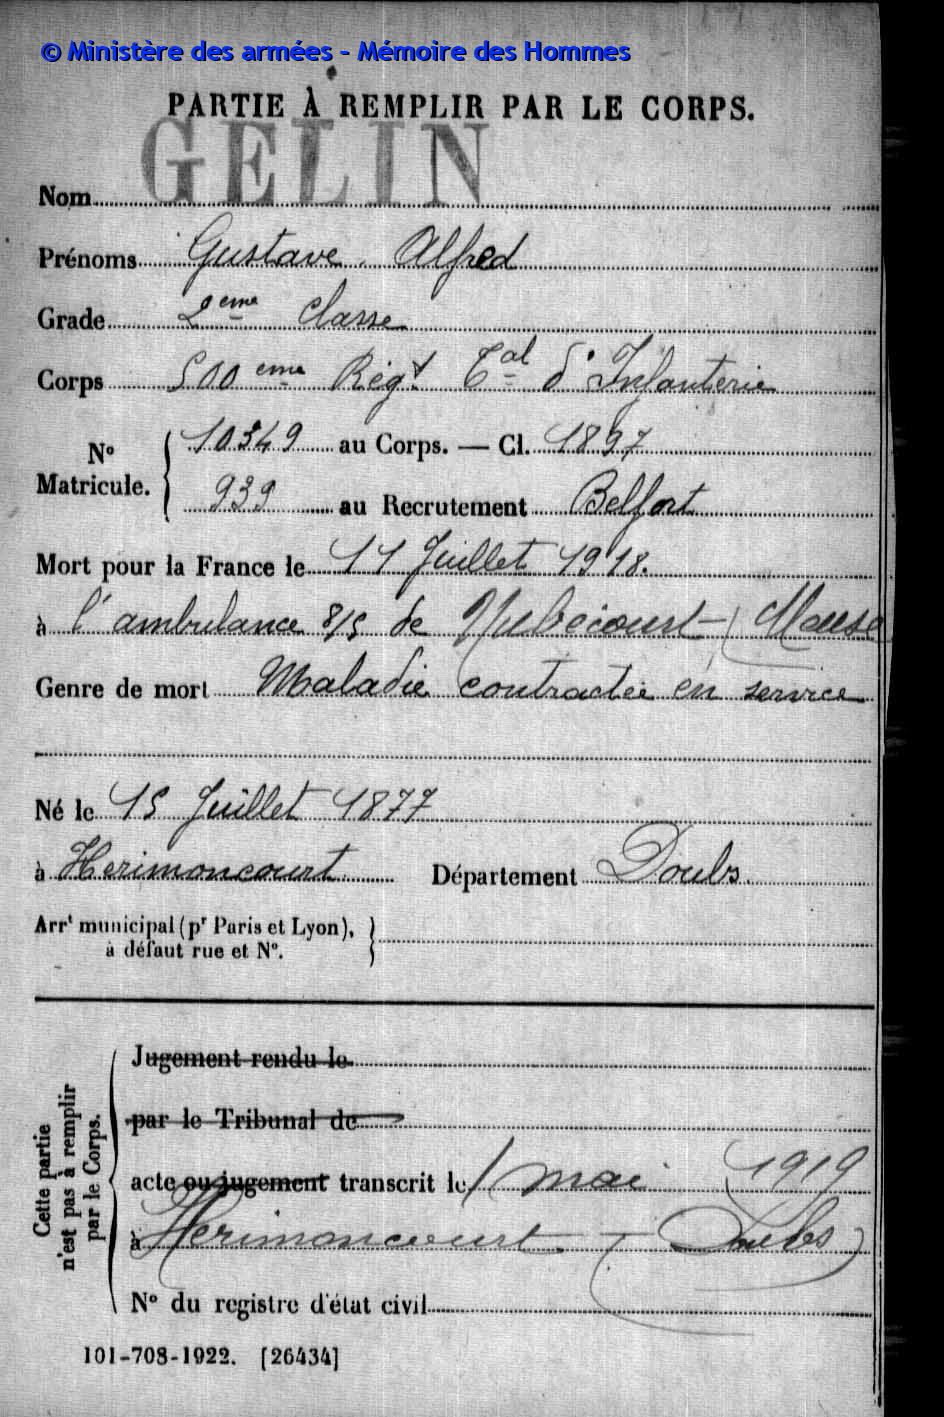 © Ministère des armées - Mémoire des Hommes
PARTIE À REMPLIR PAR LE CORPS.
Nom GELIN
Prénoms Gustave Alfred
Grade 2eme classe
Corps 500eme Régt Tal d'Infanterie
N° Matricule. { 10349 au Corps. — Cl. 1897
939 au Recrutement Belfort
Mort pour la France le 11 Juillet 1918.
à l'ambulance 8/5 de Nubécourt (Meuse
Genre de mort Maladie contractée en service
Né le 15 Juillet 1877
à Herimoncourt Département Doubs.
Arrt municipal (pr Paris et Lyon), }
à défaut rue et N°.
Cette partie n'est pas à remplir par le Corps.
Jugement rendu le
par le Tribunal de
acte ou jugement transcrit le 1 mai 1919
à Herimoncourt (Doubs)
N° du registre d'état civil
101-708-1922. [26434]